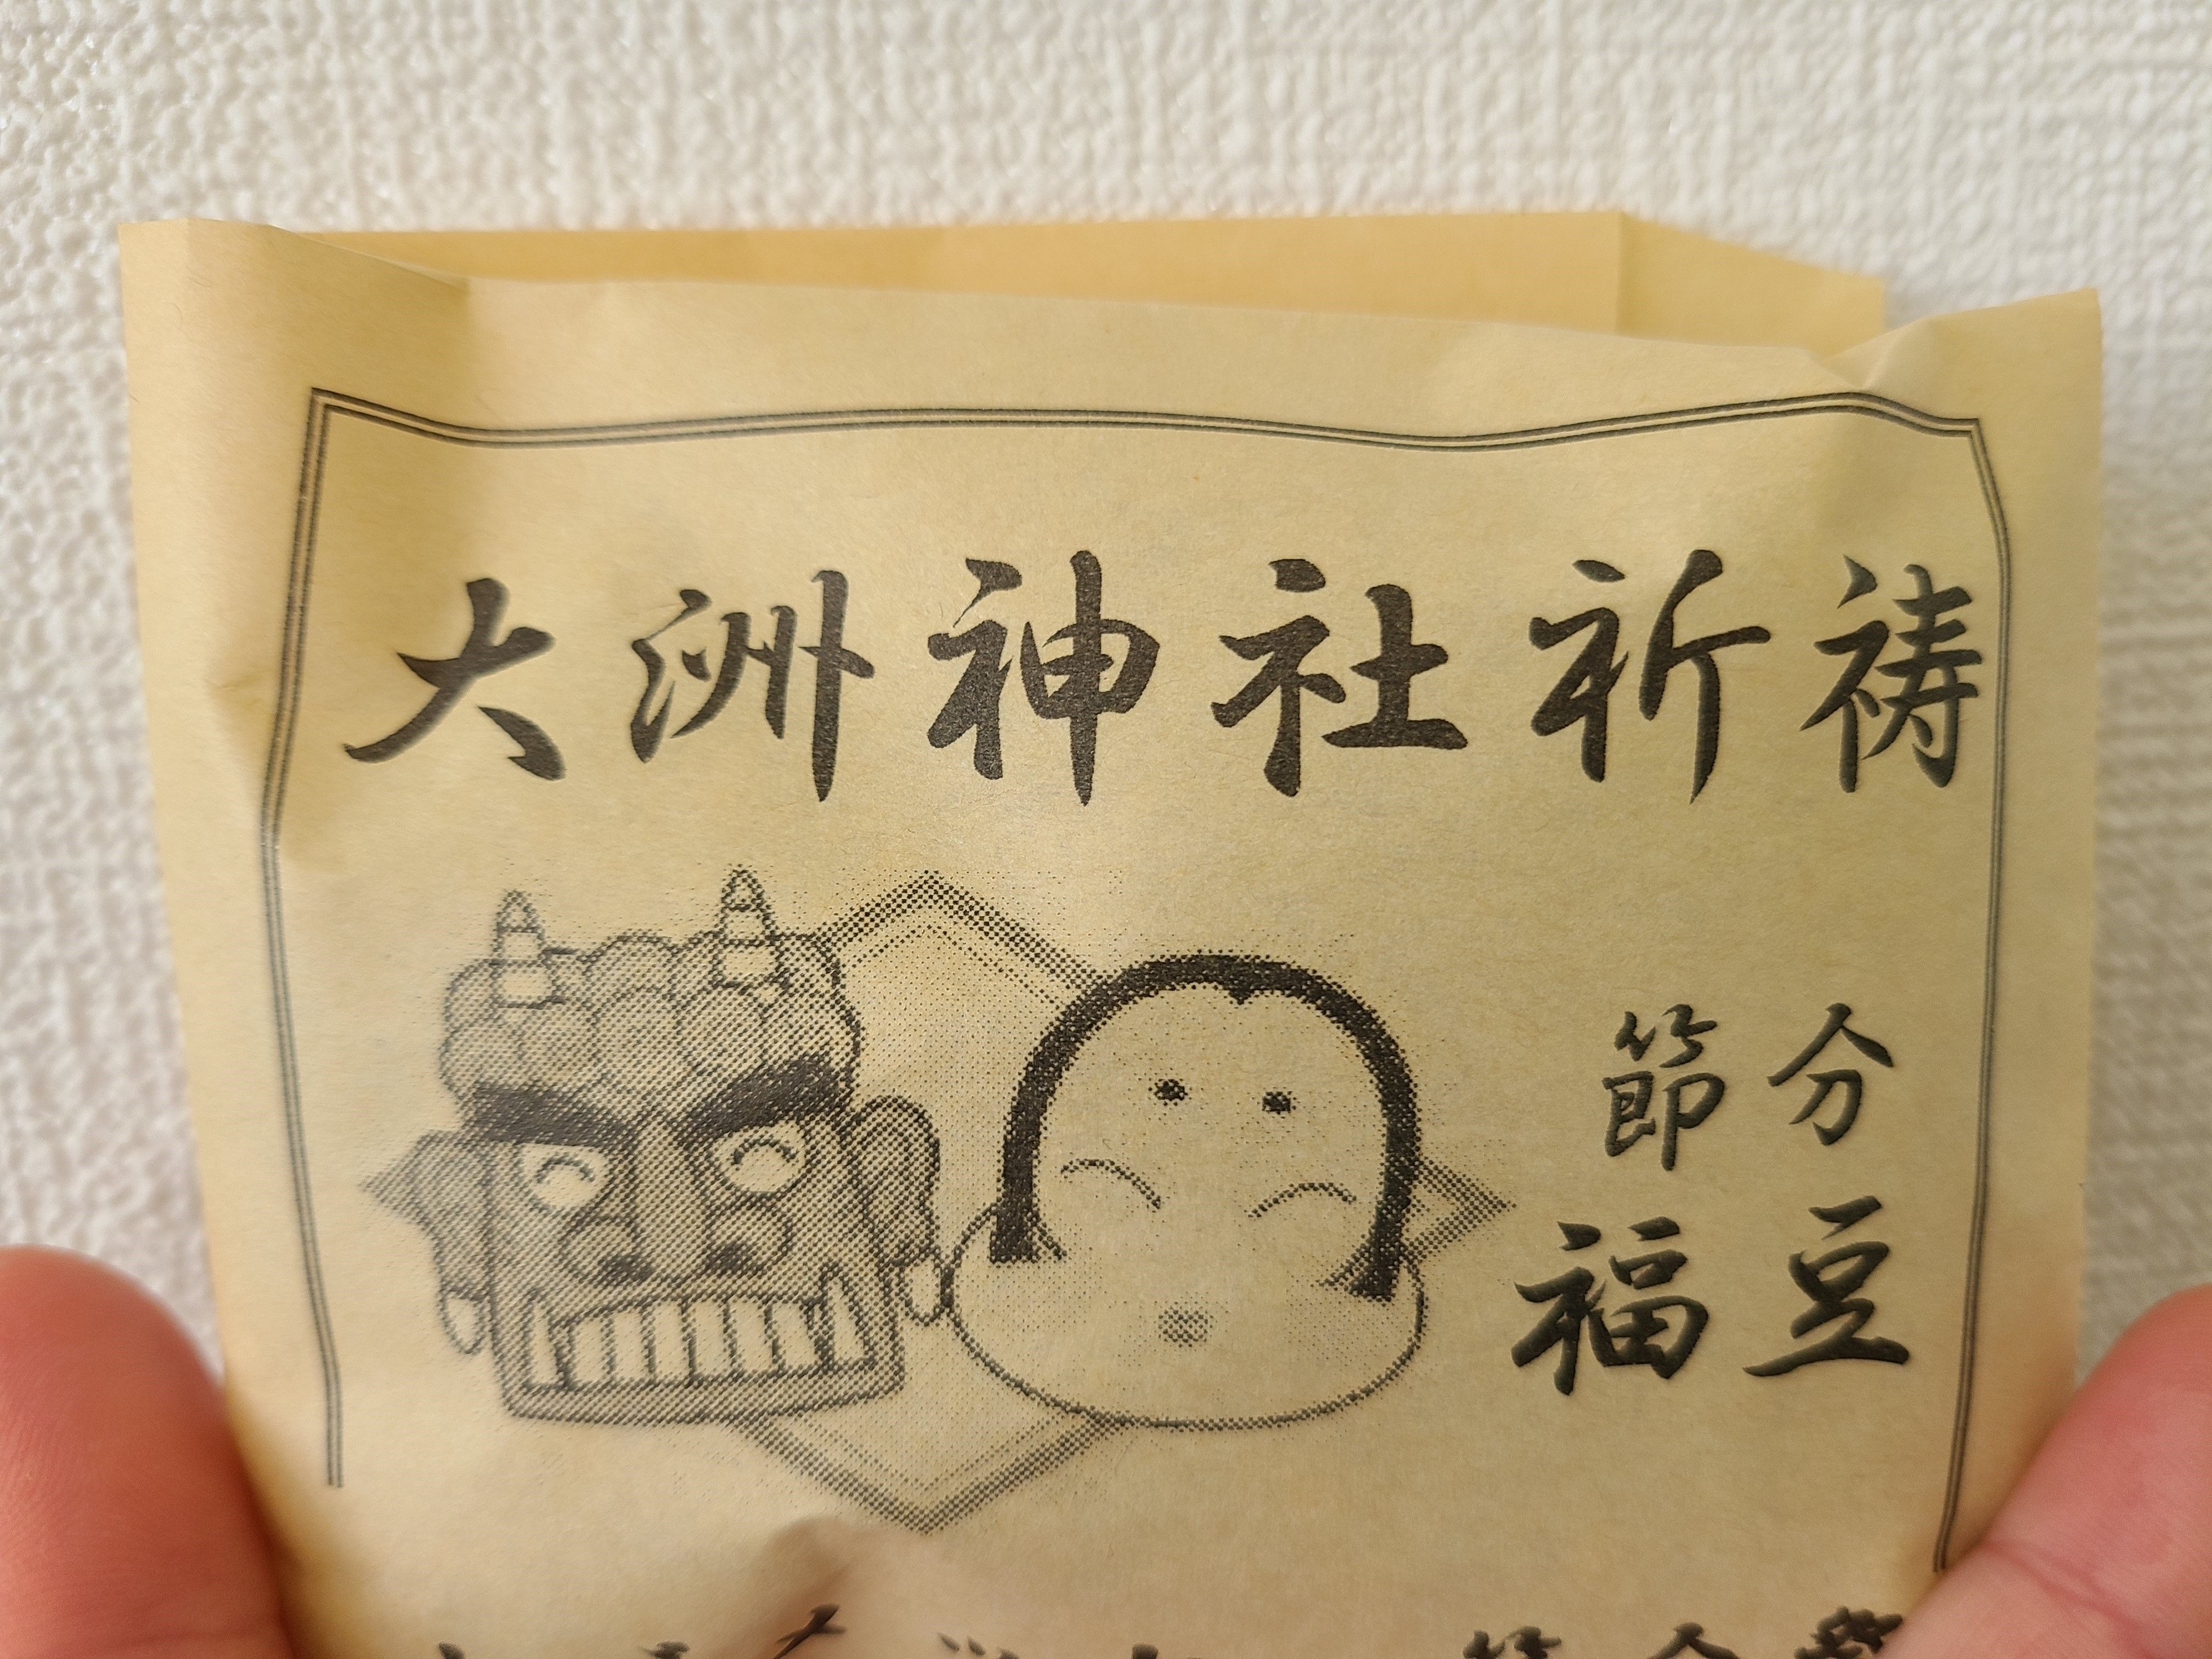 大洲神社祈祷
節分
福豆